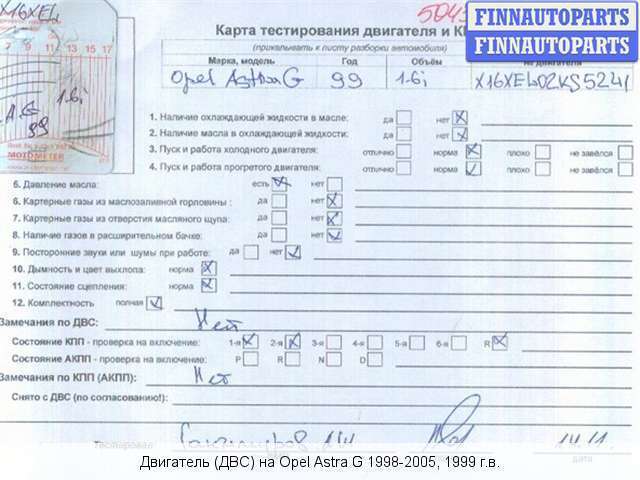 X16XEL
504
FINNAUTOPARTS
FINNAUTOPARTS
7 9 11 13 15 17
1.6i
99
MOTOMETER
Карта тестирования двигателя и
(прикалывать к листу разборки автомобиля)
Марка, модель Год Объём № двигателя
Opel Astra G 99 1.6i X16XEL02KS5241
1. Наличие охлаждающей жидкости в масле: да нет
2. Наличие масла в охлаждающей жидкости: да нет
3. Пуск и работа холодного двигателя: отлично норма плохо не завёлся
4. Пуск и работа прогретого двигателя: отлично норма плохо не завёлся
5. Давление масла: есть нет
6. Картерные газы из маслозаливной горловины : да нет
7. Картерные газы из отверстия масляного щупа: да нет
8. Наличие газов в расширительном бачке: да нет
9. Посторонние звуки или шумы при работе: да нет
10. Дымность и цвет выхлопа: норма
11. Состояние сцепления: норма
12. Комплектность полная
Замечания по ДВС: Нет
Состояние КПП - проверка на включение: 1-я 2-я 3-я 4-я 5-я 6-я R
Состояние АКПП - проверка на включение: P R N D
Замечания по КПП (АКПП): Нет
Снято с ДВС (по согласованию!):
Тестировал дата
Двигатель (ДВС) на Opel Astra G 1998-2005, 1999 г.в.